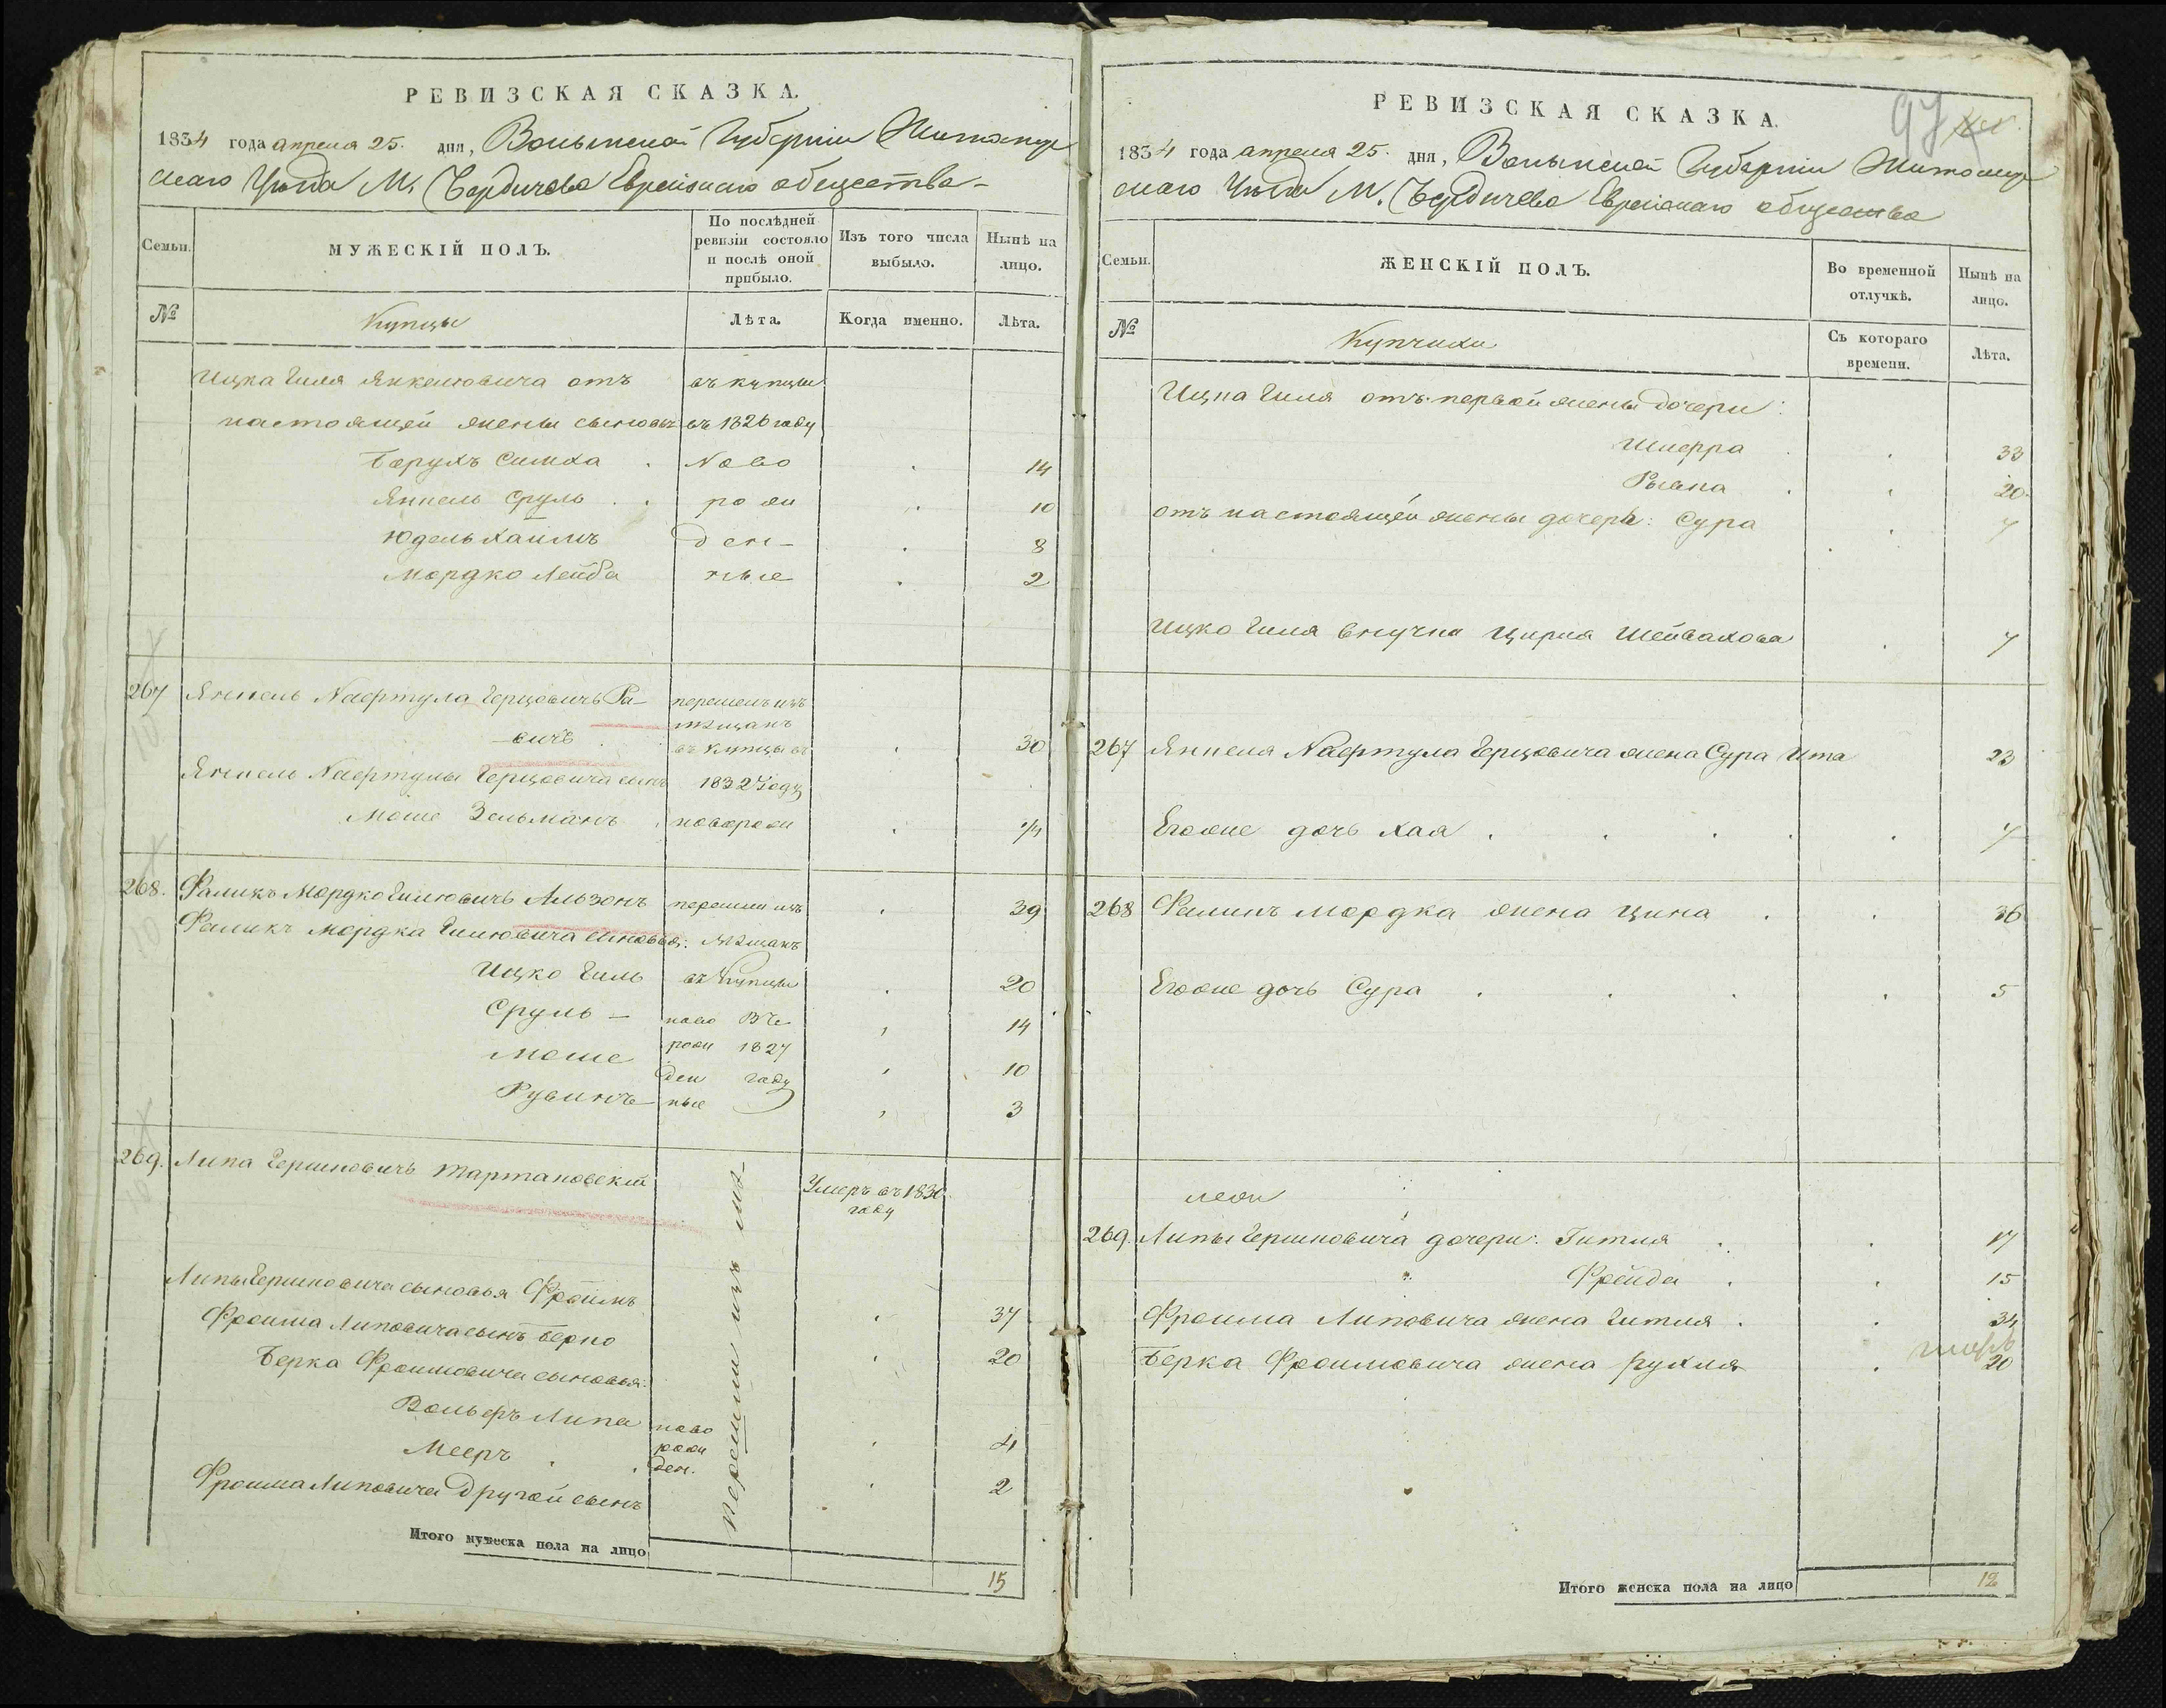 РЕВИЗСКАЯ СКАЗКА.
1834 года апреля 25. дня, Волынской Губерніи Житомир
скаго Уѣзда М. Бердичева Еврейскаго общества
Семьи.
МУЖЕСКІЙ ПОЛЪ.
По послѣдней ревизіи состояло и послѣ оной прибыло.
Изъ того числа выбыло.
Нынѣ на лицо.
№
Купцы
Лѣта.
Когда именно.
Лѣта.
Ицка Гиля Янкелювича отъ въ купцы
настоящей жены сыновья въ 1826 году
Барухъ Симха Ново 14
Янкель Сруль рож 10
Юдель Хаимъ ден 8
Мордко Лейба ные 2
267 Янкель Нафтула Герцовичъ Ра- перешелъ изъ
мѣщанъ
вичъ въ купцы въ 30
Янкель Нафтулы Герцовича сынъ 1832 году
Моше Зельманъноворож 1/4
268. Фаликъ Мордко Гилювичъ Альзонъ перешли изъ 39
Фаликъ Мордка Гилювича сыновья: мѣщанъ
Ицко Гиль въ Купцы 20
Сруль ново въ 14
Моше рож 1827 10
Рувинъ ден году
ные 3
269. Липа Гершковичъ Тартаковскій Умеръ въ 1830
году
Перешли изъ мѣ-
Липы Гершковича сыновья Фроимъ 37
Фроима Липовича сынъ Берко 20
Берка Фроимовича сыновья:
Вольфъ Липа ново 4
Мееръ рож
ден. 2
Фроима Липовича другой сынъ
Итого мужеска пола на лицо 15
97
РЕВИЗСКАЯ СКАЗКА.
1834 года апреля 25. дня, Волынской Губерніи Житомир
скаго Уѣзда М. Бердичева Еврейскаго общества
Семьи.
ЖЕНСКІЙ ПОЛЪ.
Во временной отлучкѣ.
Нынѣ на лицо.
№
Купчихи
Съ котораго времени.
Лѣта.
Ицка Гиля отъ первой жены дочери:
33
20
отъ настоящей жены дочерь: Сура 7
Ицко Гиля внучка Цирля Шейвахова 7
267 Янкеля Нафтула Герцовича жена Сура Ита 23
Егоже дочь Хая 7
268 Фаликъ Мордка жена Цина 36
Егоже дочь Сура 5
269. Липы Гершковича дочери: Гитля 17
Фрейда 15
Фроима Липовича жена Гитля 34
Берка Фроимовича жена Рухля 20
Итого женска пола на лицо 12